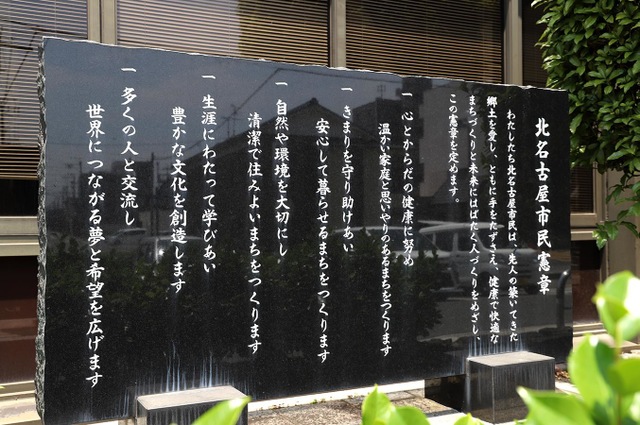 北名古屋市民憲章
わたしたち北名古屋市民は、先人の築いてきた
郷土を愛し、ともに手をたずさえ、健康で快適な
まちづくりと未来にはばたく人づくりをめざし、
この憲章を定めます。
一 心とからだの健康に努め
温かい家庭と思いやりのあるまちをつくります
一 きまりを守り助けあい
安心して暮らせるまちをつくります
一 自然や環境を大切にし
清潔で住みよいまちをつくります
一 生涯にわたって学びあい
豊かな文化を創造します
一 多くの人と交流し
世界につながる夢と希望を広げます